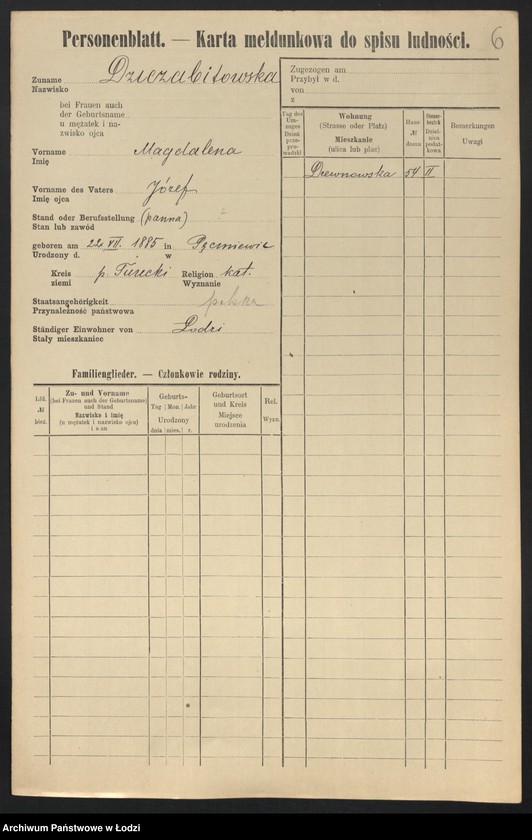 6
Personenblatt. — Karta meldunkowa do spisu ludności.
Zuname
Nazwisko
Dziezabitowska
bei Frauen auch
der Geburtsname
u mężatek i na-
zwisko ojca
Vorname Magdalena
Imię
Vorname des Vaters Józef
Imię ojca
Stand oder Berufsstellung (panna)
Stan lub zawód
geboren am 22. VII. 1885 in Pęczniewie
Urodzony d. w
Kreis p. Turecki Religion kat.
ziemi Wyznanie
Staatsangehörigkeit polska
Przynależność państwowa
Ständiger Einwohner von Łodzi
Stały mieszkaniec
Zugezogen am
Przybył w d.
von
z
Tag des Um-zuges Dzień prze-pro-wadzki
Wohnung
(Strasse oder Platz)
Mieszkanie
(ulica lub plac)
Haus
№
domu
Steuer-bezirk Dziel-nica podat-kowa
Bemerkungen
Uwagi
Drewnowska 54 II
Familienglieder. — Członkowie rodziny.
Lfd.
№
bież.
Zu- und Vorname
(bei Frauen auch der Geburtsname)
und Stand
Nazwisko i imię
(u mężatek i nazwisko ojca)
i stan
Geburts-
Tag Mon. Jahr
Urodzony
dnia mies. r.
Geburtsort
und Kreis
Miejsce
urodzenia
Rel.
Wyzn.
Archiwum Państwowe w Łodzi